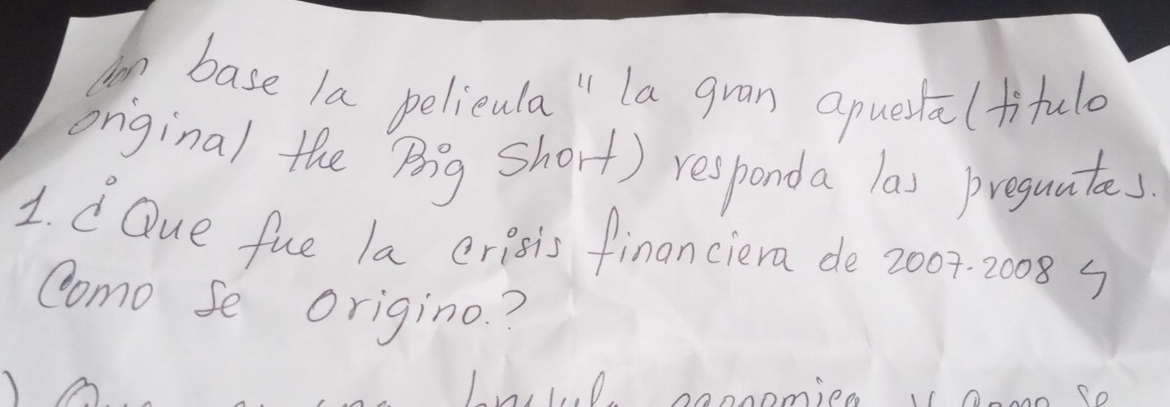 Con base la pelicula "la gran apuesta(titulo
original the Big Short) responda las preguntas.
1. ¿Que fue la crisis financiera de 2007-2008 y
Como se origino.?
economica y Como se